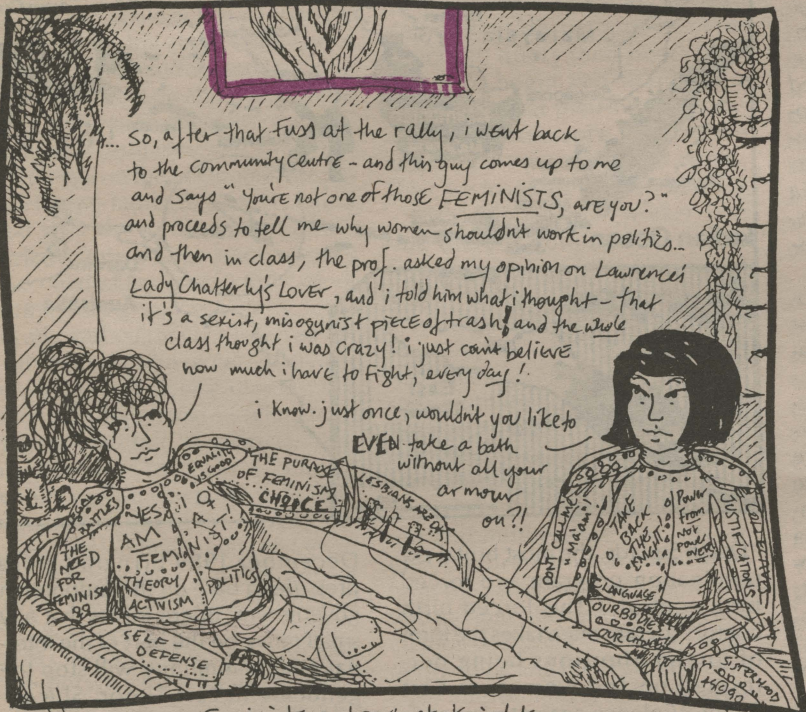 ... so, after that fuss at the rally, i went back
to the community centre - and this guy comes up to me
and says "You're not one of those FEMINISTS, are you?"
and proceeds to tell me why women shouldn't work in politics...
and then in class, the prof. asked my opinion on Lawrence's
Lady Chatterly's Lover, and i told him what i thought - that
it's a sexist, misogynist piece of trash! and the whole
class thought i was crazy! i just can't believe
how much i have to fight, every day!
i know. just once, wouldn't you like to
EVEN take a bath
without all your
armour
on?!
EQUALITY
IS GOOD
THE PURPOSE
OF FEMINISM
CHOICE
LESBIANS ARE OK
BATTLES
THE
NEED
FOR
FEMINISM
YES I
AM A
FEMINIST!
THEORY
POLITICS
ACTIVISM
SELF-
DEFENSE
DON'T CALL ME
"Madam"!
TAKE
BACK
THE
NIGHT
Power
From
Not
Power
OVER
JUSTIFICATIONS
COLLECTIVES
LANGUAGE
OUR BODIES
OUR CHOICE
SISTERHOOD
©90